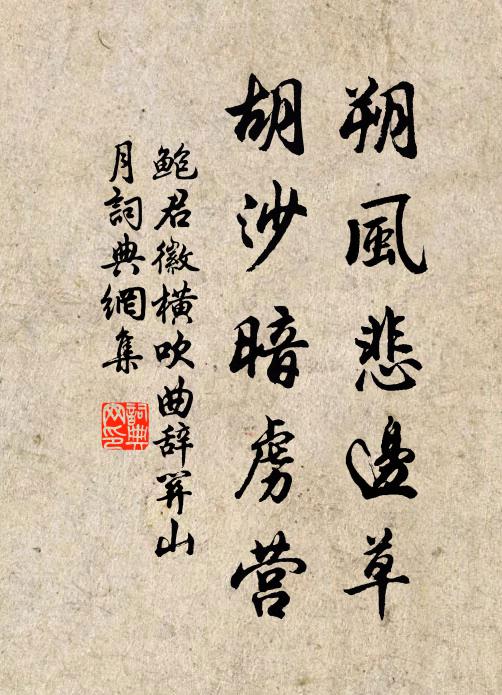 朔風悲邊草
胡沙暗虜營
鲍君徽橫吹曲辞関山
月詞典網集
詞典
网印